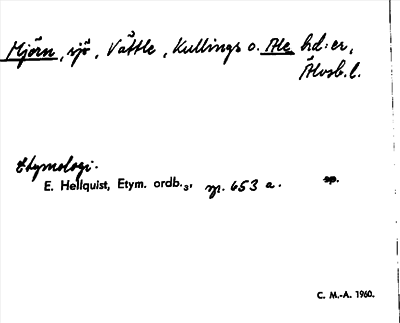 Mjörn, sjö, Vättle, Kullings o. Ale hd:er,
Älvsb. l.
Etymologi.
E. Hellquist, Etym. ordb.₃, sp. 653 a.
C. M.-A. 1960.